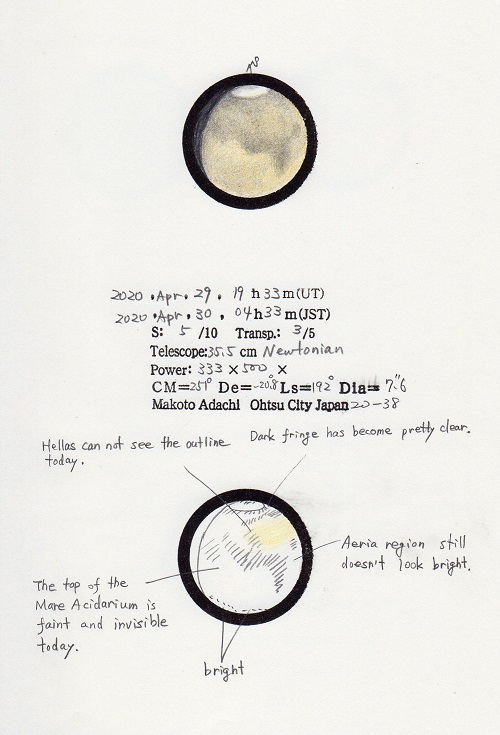 N
2020 . Apr . 29 , 19 h 33 m(UT)
2020 . Apr . 30 , 04 h 33 m(JST)
S: 5 /10 Transp.: 3/5
Telescope:35.5 cm Newtonian
Power: 333 × 500 ×
CM=251° De=-20.8° Ls=192° Dia= 7.″6
Makoto Adachi Ohtsu City Japan 20-38
Hellas can not see the outline
today.
Dark fringe has become pretty clear.
Aeria region still
doesn't look bright.
The top of the
Mare Acidarium is
faint and invisible
today.
bright